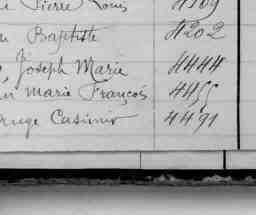 Pierre Louis 4109
Baptiste 4202
Joseph Marie 4444
Marie François 4455
Casimir 4491